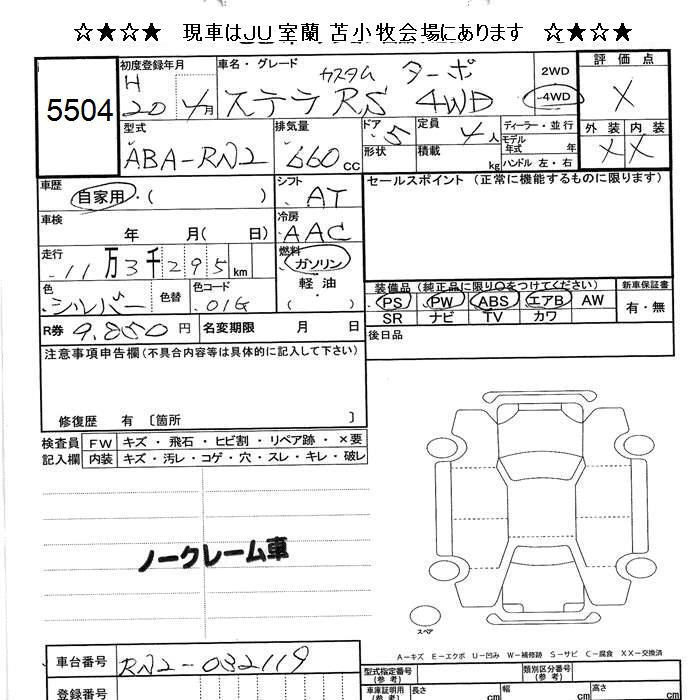 ☆★☆★ 現車はJU室蘭 苫小牧会場にあります ☆★☆★
5504
初度登録年月 車名・グレード 2WD 4WD 評価点
H 20 4月 カスタム ターボ
ステラ RS 4WD X
型式 排気量 ドア 定員 ディーラー・並行 外装 内装
ABA-RN2 660cc 5 4人 モデル年式 年 X X
形状 積載 kg ハンドル 左・右
車歴 シフト セールスポイント (正常に機能するものに限ります)
自家用・( ) AT
車検 冷房
年 月( 日) AAC
走行 燃料
11万3千295km ガソリン
色 色替 色コード 軽油
シルバー 01G ・( )
装備品 (純正品に限り○をつけてください) 新車保証書
PS PW ABS エアB AW 有・無
SR ナビ TV カワ
R券 9.850円 名変期限 月 日 後日品
注意事項申告欄 (不具合内容等は具体的に記入して下さい)
修復歴 有 〔箇所 〕
検査員 FW キズ・飛石・ヒビ割・リペア跡・×要
記入欄 内装 キズ・汚レ・コゲ・穴・スレ・キレ・破レ
ノークレーム車
スペア
A−キズ E−エクボ U−凹み W−補修跡 S−サビ C−腐食 XX−交換済
車台番号 RN2-032119
型式指定番号 (参考) 類別区分番号 (参考)
登録番号
車庫証明用 (参考) 長さ cm 幅 cm 高さ cm